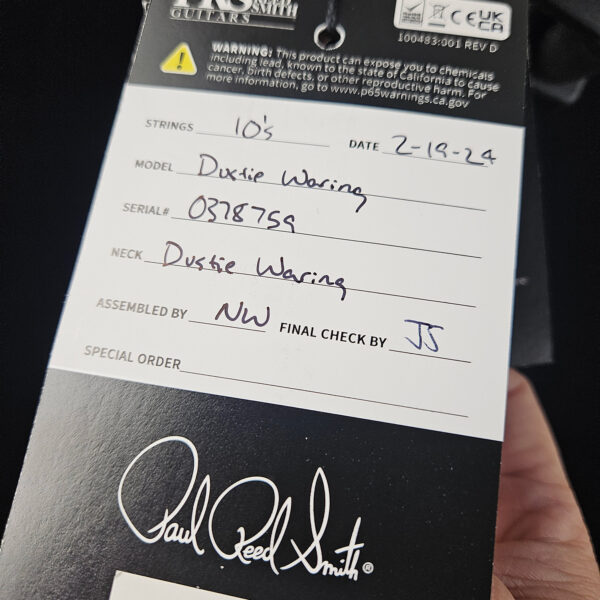 PRS
SMITH
GUITARS
CE UK CA
100483:001 REV D
WARNING: This product can expose you to chemicals
including lead, known to the state of California to cause
cancer, birth defects, or other reproductive harm. For
more information, go to www.p65warnings.ca.gov
STRINGS 10's DATE 2-19-24
MODEL Dustie Waring
SERIAL# 0378759
NECK Dustie Waring
ASSEMBLED BY NW FINAL CHECK BY JJ
SPECIAL ORDER
Paul Reed Smith®